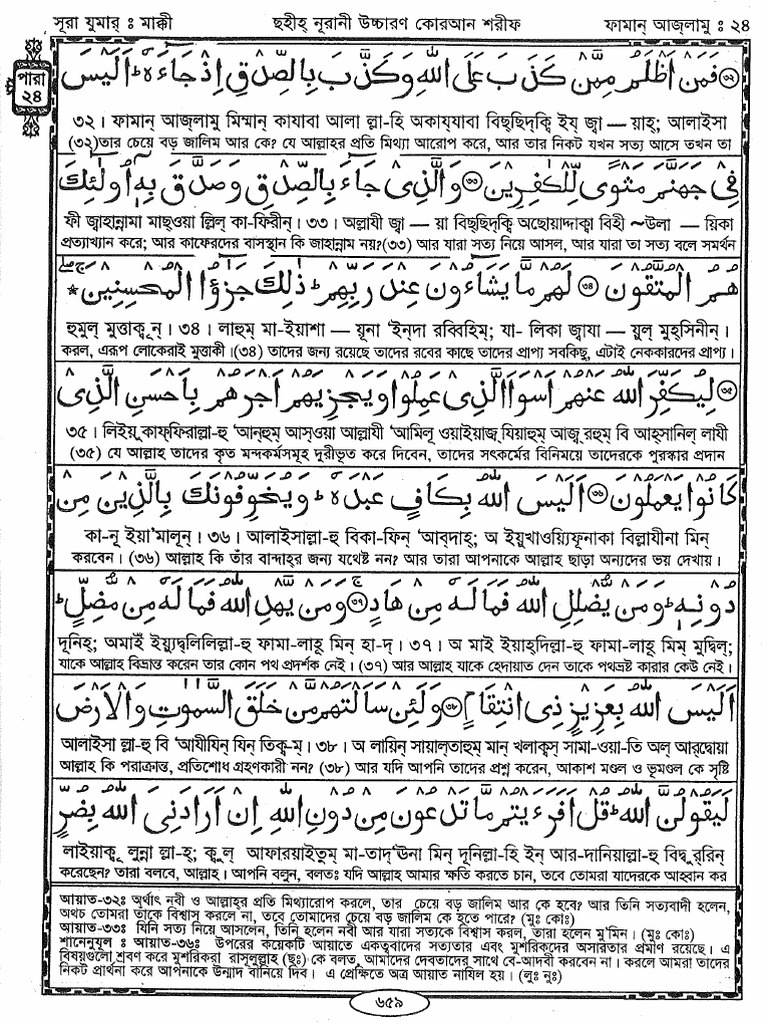 সূরা যুমার্ ঃ মাক্কী
ছহীহ্ নূরানী উচ্চারণ কোরআন শরীফ
ফামান্ আজ্লামু ঃ ২৪
পারা
২৪
۞ فَمَنْ اَظْلَمُ مِمَّنْ كَذَبَ عَلَى اللّٰهِ وَكَذَّبَ بِالصِّدْقِ اِذْ جَآءَهٗ ؕ اَلَيْسَ
৩২। ফামান্ আজ্লামু মিম্মান্ কাযাবা আলা ল্লা-হি অকায্যাবা বিছ্ছিদ্ক্বি ইয্ জ্বা — য়াহ্; আলাইসা
(৩২)তার চেয়ে বড় জালিম আর কে? যে আল্লাহর প্রতি মিথ্যা আরোপ করে, আর তার নিকট যখন সত্য আসে তখন তা
فِيْ جَهَنَّمَ مَثْوًى لِّلْكٰفِرِيْنَ ۞ وَالَّذِيْ جَآءَ بِالصِّدْقِ وَصَدَّقَ بِهٖٓ اُولٰٓئِكَ
ফী জ্বাহান্নামা মাছ্ওয়া ল্লিল্ কা-ফিরীন্। ৩৩। অল্লাযী জ্বা — য়া বিছ্ছিদ্ক্বি অছোয়াদ্দাক্বা বিহী ~উলা — য়িকা
প্রত্যাখ্যান করে; আর কাফেরদের বাসস্থান কি জাহান্নাম নয়?(৩৩) আর যারা সত্য নিয়ে আসল, আর যারা তা সত্য বলে সমর্থন
هُمُ الْمُتَّقُوْنَ ۞ لَهُمْ مَّا يَشَآءُوْنَ عِنْدَ رَبِّهِمْ ؕ ذٰلِكَ جَزٰٓؤُا الْمُحْسِنِيْنَ ★
হুমুল্ মুত্তাক্বূন্। ৩৪। লাহুম্ মা-ইয়াশা — য়ূনা 'ইন্দা রব্বিহিম্; যা- লিকা জ্বাযা — য়ুল্ মুহ্সিনীন্।
করল, এরূপ লোকেরাই মুত্তাকী।(৩৪) তাদের জন্য রয়েছে তাদের রবের কাছে তাদের প্রাপ্য সবকিছু, এটাই নেককারদের প্রাপ্য।
۞ لِيُكَفِّرَ اللّٰهُ عَنْهُمْ اَسْوَاَ الَّذِيْ عَمِلُوْا وَيَجْزِيَهُمْ اَجْرَهُمْ بِاَحْسَنِ الَّذِيْ
৩৫। লিইয়ু কাফ্ফিরাল্লা-হু 'আন্হুম্ আস্ওয়া আল্লাযী 'আমিলূ ওয়াইয়াজ্ যিয়াহুম্ আজ্ব্ রহুম্ বি আহ্সানিল্ লাযী
(৩৫) যে আল্লাহ তাদের কৃত মন্দকর্মসমূহ দূরীভূত করে দিবেন, তাদের সৎকর্মের বিনিময়ে তাদেরকে পুরস্কার প্রদান
كَانُوْا يَعْمَلُوْنَ ۞ اَلَيْسَ اللّٰهُ بِكَافٍ عَبْدَهٗ ؕ وَيُخَوِّفُوْنَكَ بِالَّذِيْنَ مِنْ
কা-নূ ইয়া'মালূন্। ৩৬। আলাইসাল্লা-হু বিকা-ফিন্ 'আব্দাহ্; অ ইয়ুখাওয়্যিফূনাকা বিল্লাযীনা মিন্
করবেন। (৩৬) আল্লাহ কি তাঁর বান্দাহর জন্য যথেষ্ট নন? আর তারা আপনাকে আল্লাহ ছাড়া অন্যদের ভয় দেখায়।
دُوْنِهٖ ؕ وَمَنْ يُّضْلِلِ اللّٰهُ فَمَا لَهٗ مِنْ هَادٍ ۞ وَمَنْ يَّهْدِ اللّٰهُ فَمَا لَهٗ مِنْ مُّضِلٍّ ؕ
দূনিহ্; অমাইঁ ইয়্যুদ্বলিলিল্লা-হু ফামা-লাহূ মিন্ হা-দ্। ৩৭। অ মাই ইয়াহ্দিল্লা-হু ফামা-লাহূ মিম্ মুদ্বিল্;
যাকে আল্লাহ বিভ্রান্ত করেন তার কোন পথ প্রদর্শক নেই। (৩৭) আর আল্লাহ যাকে হেদায়াত দেন তাকে পথভ্রষ্ট কারার কেউ নেই।
اَلَيْسَ اللّٰهُ بِعَزِيْزٍ ذِي انْتِقَامٍ ۞ وَلَئِنْ سَاَلْتَهُمْ مَّنْ خَلَقَ السَّمٰوٰتِ وَالْاَرْضَ
আলাইসা ল্লা-হু বি 'আযীযিন্ যিন্ তিক্বা-ম্। ৩৮। অ লায়িন্ সায়াল্তাহুম্ মান্ খলাক্বস্ সামা-ওয়া-তি অল্ আর্দ্বোয়া
আল্লাহ কি পরাক্রান্ত, প্রতিশোধ গ্রহণকারী নন? (৩৮) আর যদি আপনি তাদের প্রশ্ন করেন, আকাশ মণ্ডল ও ভূমণ্ডল কে সৃষ্টি
لَيَقُوْلُنَّ اللّٰهُ ؕ قُلْ اَفَرَءَيْتُمْ مَّا تَدْعُوْنَ مِنْ دُوْنِ اللّٰهِ اِنْ اَرَادَنِيَ اللّٰهُ بِضُرٍّ
লাইয়াক্বূ লুন্না ল্লা-হ্; ক্বুল্ আফারয়াইতুম্ মা-তাদ্'ঊনা মিন্ দূনিল্লা-হি ইন্ আর-দানিয়াল্লা-হু বিদ্বুর্‌রিন্
করেছেন? তারা বলবে, আল্লাহ। আপনি বলুন, বলতঃ যদি আল্লাহ আমার ক্ষতি করতে চান, তবে তোমরা যাদেরকে আহ্বান কর
আয়াত-৩২ঃ অর্থাৎ নবী ও আল্লাহর প্রতি মিথ্যারোপ করলে, তার চেয়ে বড় জালিম আর কে হবে? আর তিনি সত্যবাদী হলেন,
অথচ তোমরা তাঁকে বিশ্বাস করলে না, তবে তোমাদের চেয়ে বড় জালিম কে হতে পারে? (মুঃ কোঃ)
আয়াত-৩৩ঃ যিনি সত্য নিয়ে আসলেন, তিনি হলেন নবী আর যারা সত্যকে বিশ্বাস করল, তারা হলেন মু'মিন। (মুঃ কোঃ)
শানেনুযূল ঃ আয়াত-৩৬ঃ উপরের কয়েকটি আয়াতে একত্ববাদের সত্যতার এবং মুশরিকদের অসারতার প্রমাণ রয়েছে। এ
বিষয়গুলো শ্রবণ করে মুশরিকরা রাসূলুল্লাহ (ছঃ) কে বলত, আমাদের দেবতাদের সাথে বে-আদবী করবেন না। করলে আমরা তাদের
নিকট প্রার্থনা করে আপনাকে উন্মাদ বানিয়ে দিব। এ প্রেক্ষিতে অত্র আয়াত নাযিল হয়। (লুঃ নুঃ)
৬৫৯